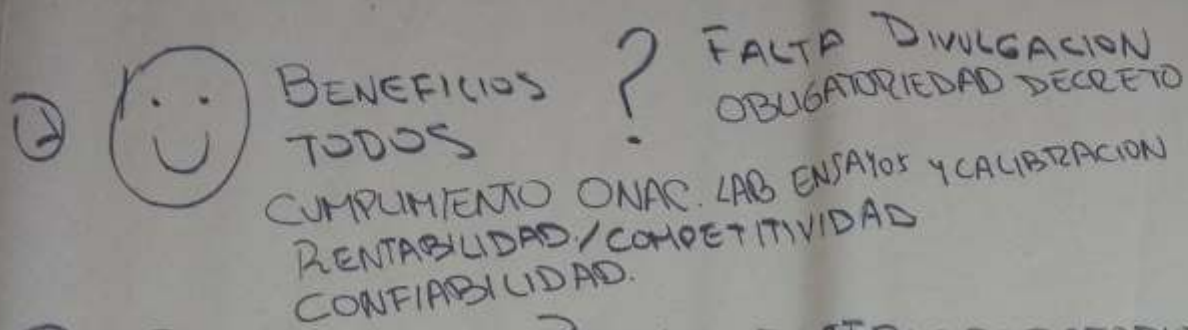 2 BENEFICIOS ? FALTA DIVULGACION
TODOS OBLIGATORIEDAD DECRETO
CUMPLIMIENTO ONAC. LAB ENSAYOS Y CALIBRACION
RENTABILIDAD/COMPETITIVIDAD
CONFIABILIDAD.